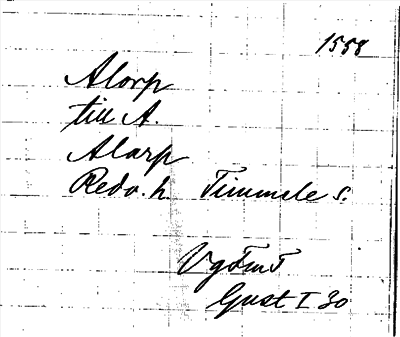 1558
Alorp
till A.
Alarp
Redv. h. Timmele s.
VgFmT
Gust I 30